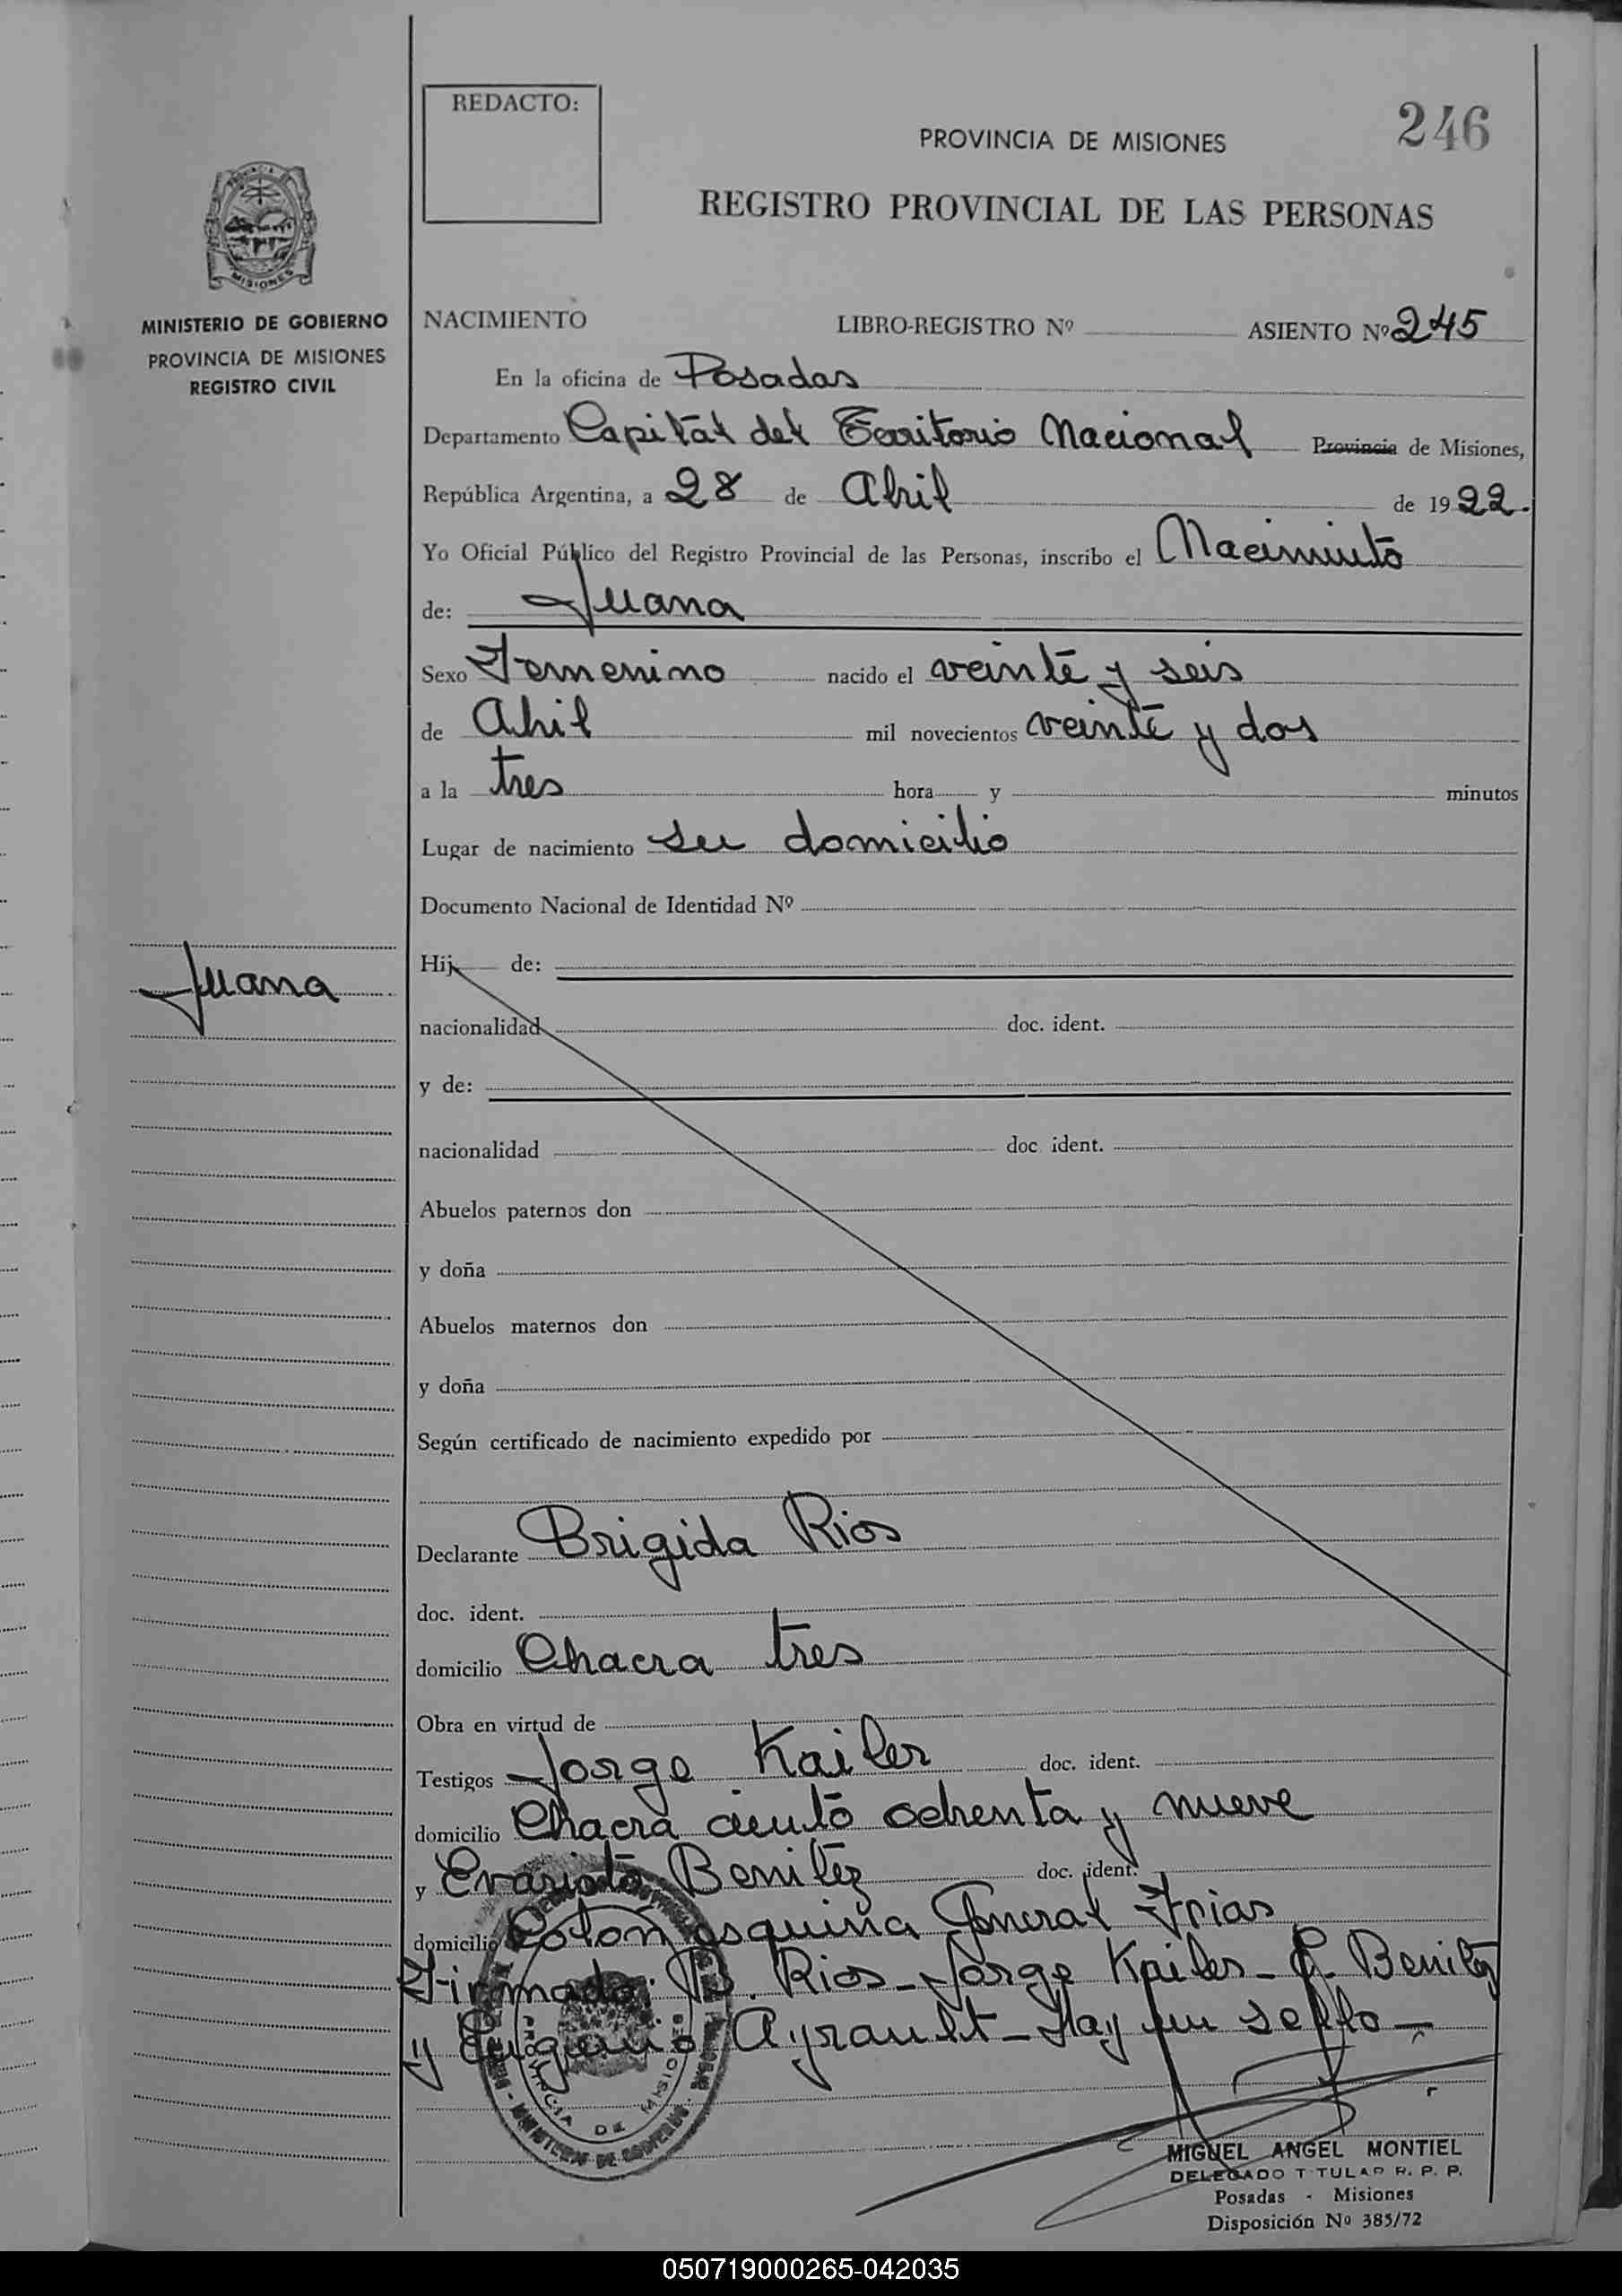 REDACTO:
246
PROVINCIA DE MISIONES
REGISTRO PROVINCIAL DE LAS PERSONAS
MISIONES
MINISTERIO DE GOBIERNO
PROVINCIA DE MISIONES
REGISTRO CIVIL
NACIMIENTO LIBRO-REGISTRO Nº ASIENTO Nº 245
En la oficina de Posadas
Departamento Capital del Territorio Nacional Provincia de Misiones,
República Argentina, a 28 de Abril de 1922.
Yo Oficial Público del Registro Provincial de las Personas, inscribo el Nacimiento
de: Juana
Sexo Femenino nacido el veinte y seis
de Abril mil novecientos veinte y dos
a la tres hora y minutos
Lugar de nacimiento su domicilio
Documento Nacional de Identidad Nº
Juana
Hij de:
nacionalidad doc. ident.
y de:
nacionalidad doc ident.
Abuelos paternos don
y doña
Abuelos maternos don
y doña
Según certificado de nacimiento expedido por
Declarante Brigida Rios
doc. ident.
domicilio Chacra tres
Obra en virtud de
Testigos Jorge Kailer doc. ident.
domicilio Chacra ciento ochenta y nueve
y Evaristo Benitez doc. ident.
domicilio Colon esquina General Frias
Firmado: B. Rios - Jorge Kailer - E. Benitez
y Eugenio Ayrault - Hay un sello -
PROVINCIA DE MISIONES
MINISTERIO DE GOBIERNO
MIGUEL ANGEL MONTIEL
DELEGADO TITULAR R. P. P.
Posadas - Misiones
Disposición Nº 385/72
050719000265-042035